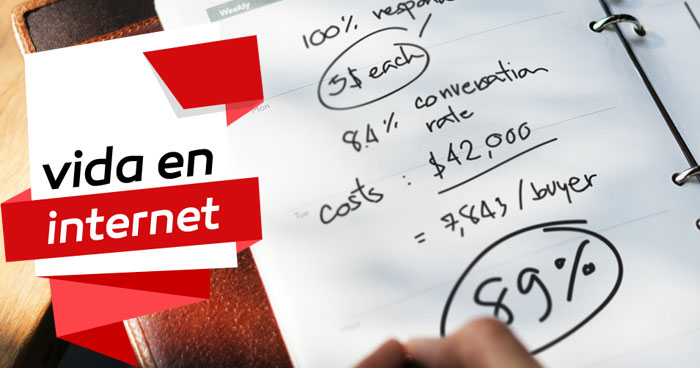 vida en
internet
Weekly
100%
5$ each
Mon
8.4% conversation
rate
costs : $42,000
Tue
= 7,843/buyer
89%
Wed